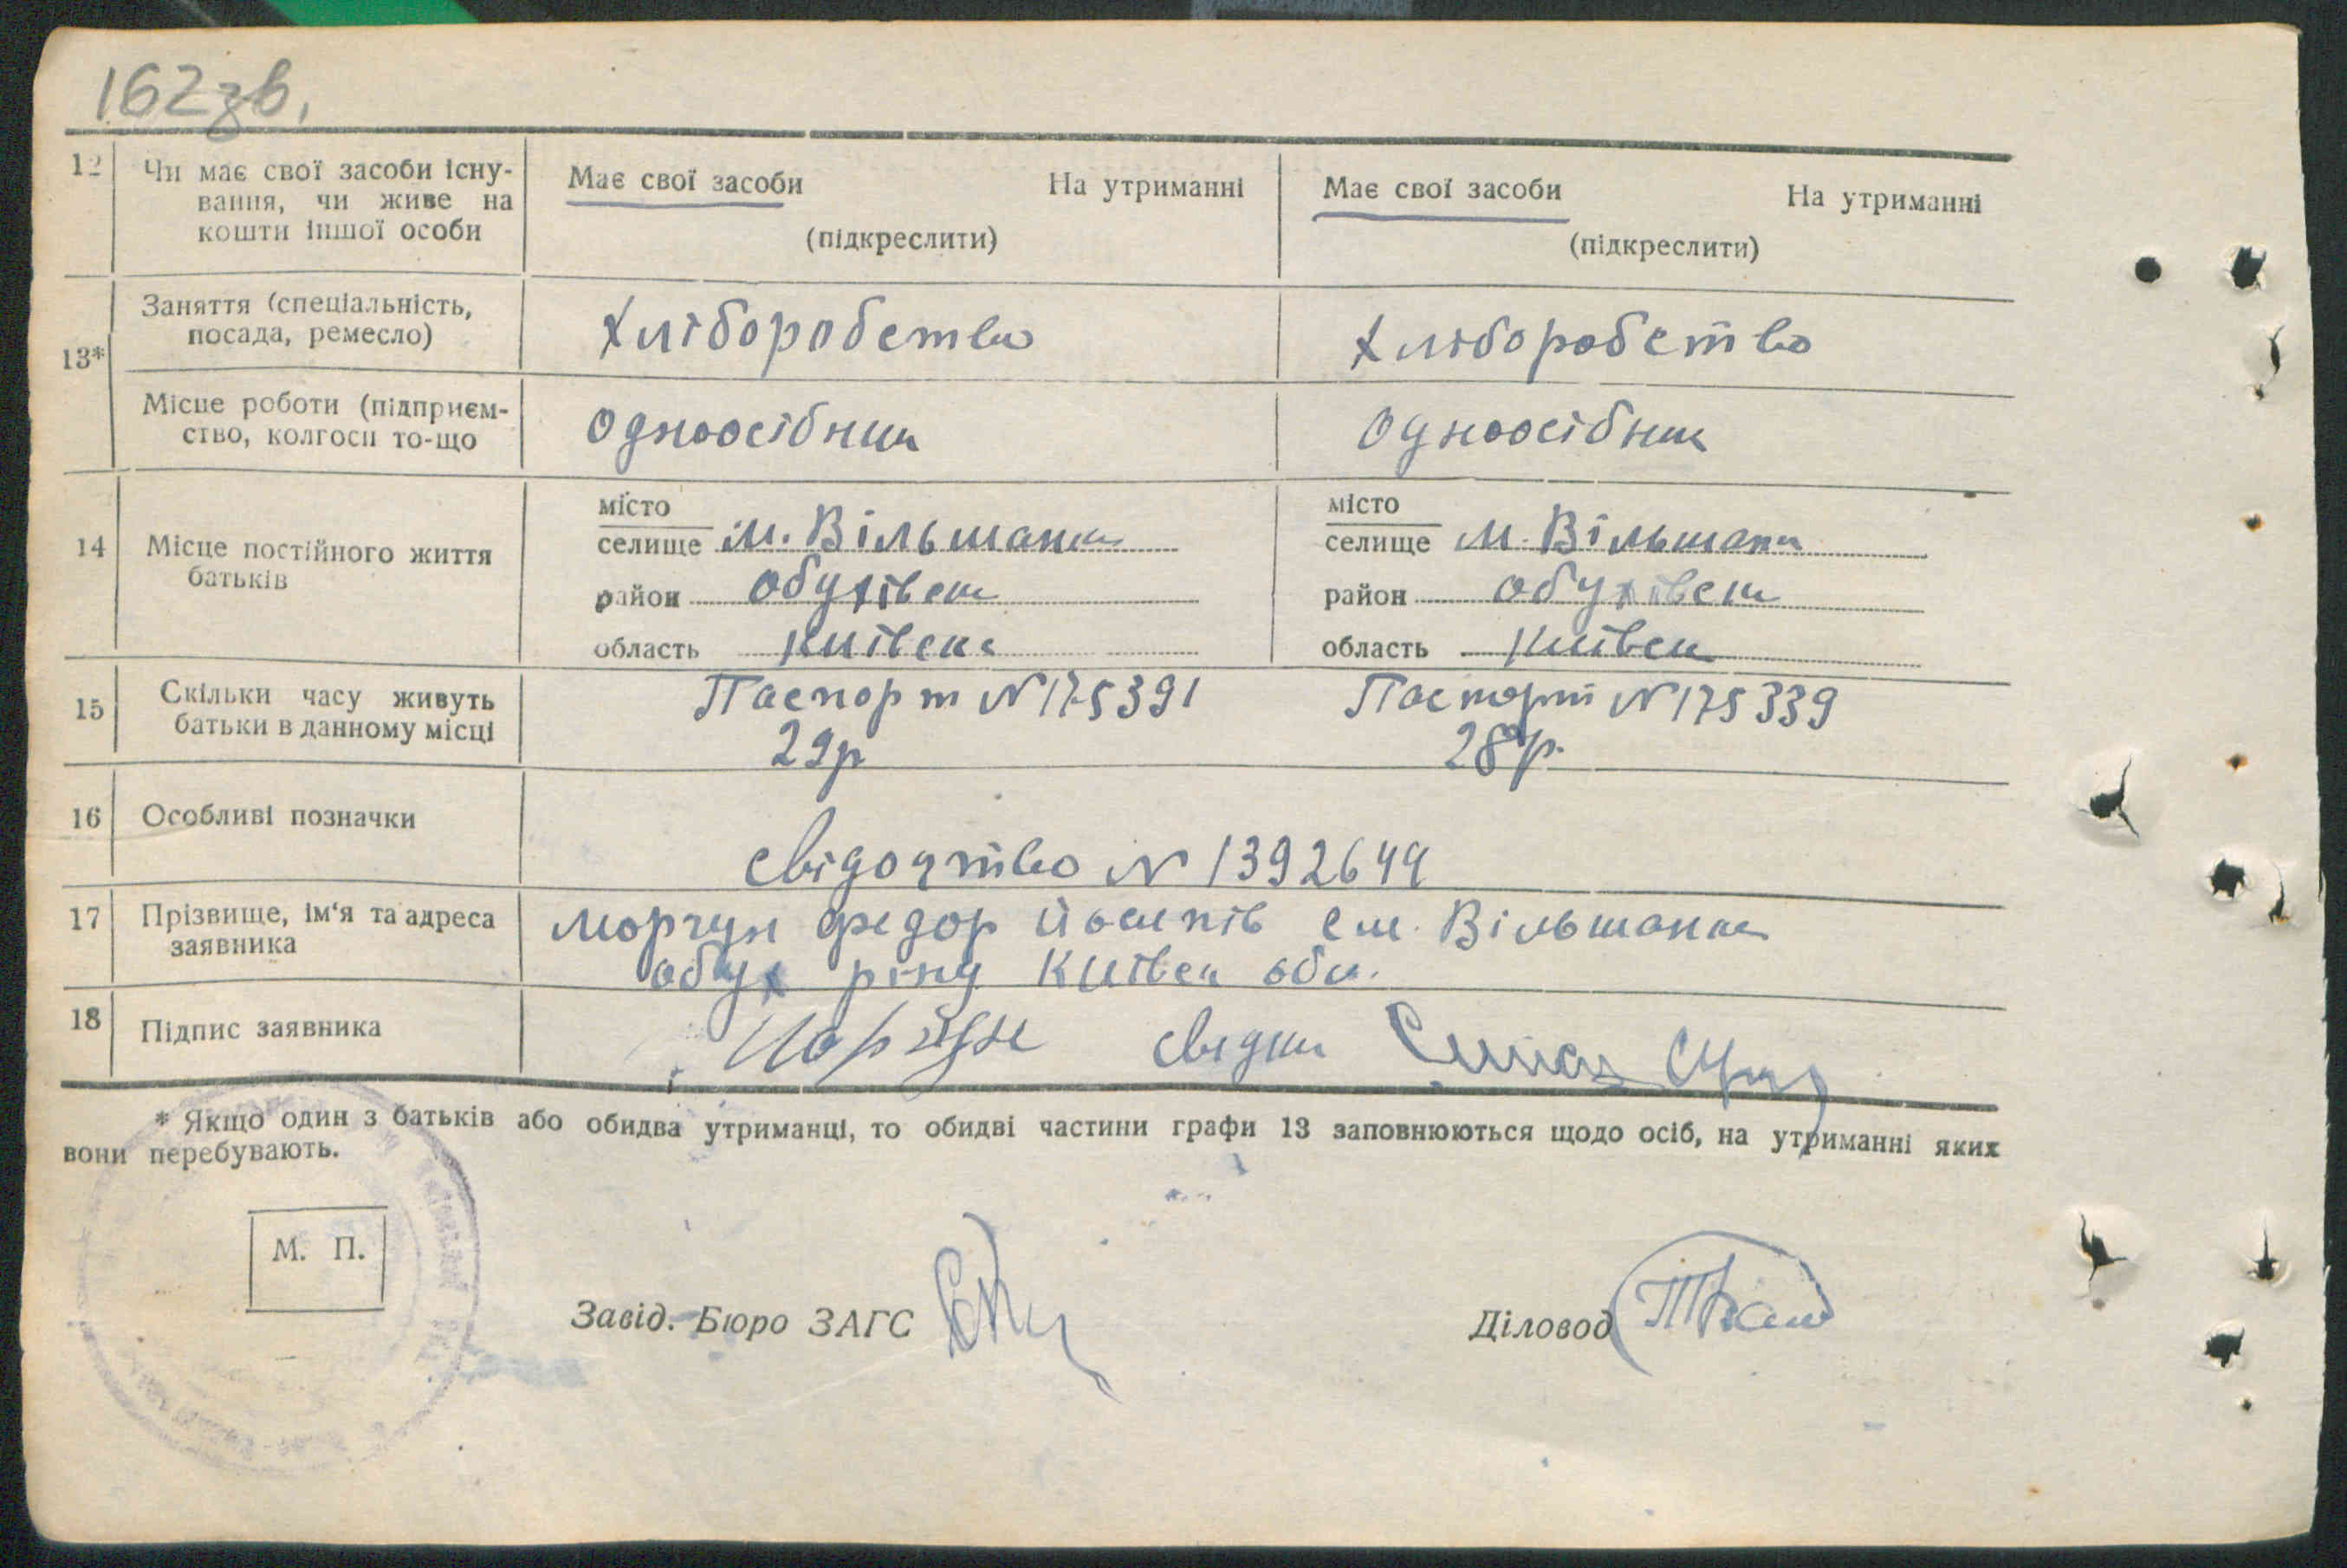 162зв.
12 Чи має свої засоби існу-
вання, чи живе на
кошти іншої особи
Має свої засоби На утриманні
(підкреслити)
Має свої засоби На утриманні
(підкреслити)
13*
Заняття (спеціальність,
посада, ремесло)
Хліборобство
Хліборобство
Місце роботи (підприєм-
ство, колгосп то-що
Одноосібник
Одноосібник
14 Місце постійного життя
батьків
місто
селище м. Вільшанка
район Обухівськ
область Київська
місто
селище м. Вільшанк
район Обухівськ
область Київськ
15 Скільки часу живуть
батьки в данному місці
Паспорт N 175391
29р
Паспорт N 175339
28р.
16 Особливі позначки
свідоцтво N 1392649
17 Прізвище, ім'я та адреса
заявника
Моргун Федор Йосипів сш. Вільшанка
Обух р-ну Київськ обл.
18 Підпис заявника
Моргун свідки
* Якщо один з батьків або обидва утриманці, то обидві частини графи 13 заповнюються щодо осіб, на утриманні яких
вони перебувають.
М. П.
Завід. Бюро ЗАГС
Діловод